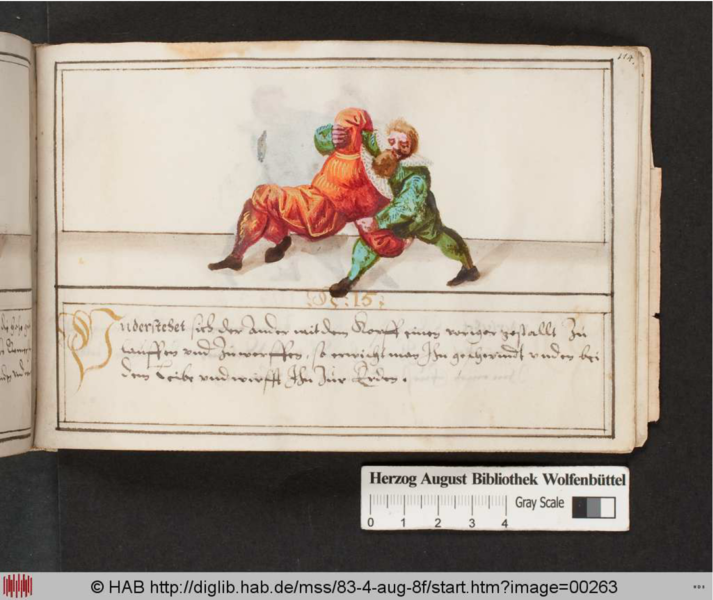 114.
N: 15:
Understehet sich der Ander mit dem Kopff eines wider gestallt Zu
lauffen und Zu werffen, so erwischt man Ihn geschwindt unden bei
dem Leibe und wirfft Ihn Zur Erden.
Herzog August Bibliothek Wolfenbüttel
Gray Scale
0 1 2 3 4
© HAB http://diglib.hab.de/mss/83-4-aug-8f/start.htm?image=00263